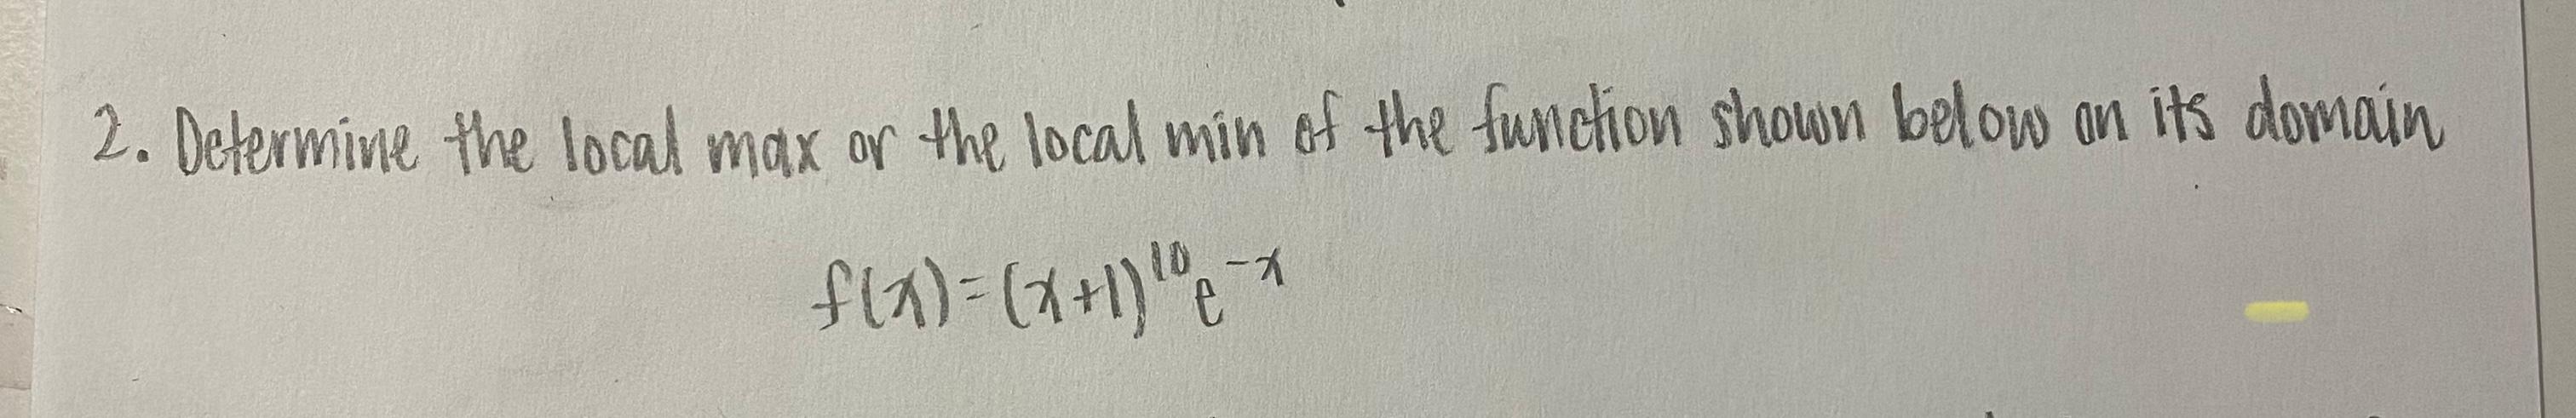 2. Determine the local max or the local min of the function shown below on its domain
f(x)=(x+1)¹⁰e⁻ˣ